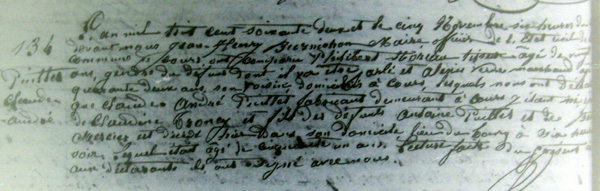 L'an mil huit cent soixante deux et le cinq Novembre six heures du
134 devant nous Jean Henry Maire officier de l'Etat civil
commune de Cours, ont comparu Philibert Moreau tisseur âgé de
Puillet ans, gendre du défunt dont il va être parlé et Alexis marchand
Claude quarante deux ans, son voisin domiciliés à Cours, lesquels nous ont
André que Claude André Puillet fabricant demeurant à Cours
de Claudine Troncy et fils des défunts Antoine Puillet et de
Mercier est décédé hier dans son domicile lieu du bourg à heures
soir, lequel était âgé de cinquante un ans. Lecture faite du présent
aux déclarants ils ont signé avec nous.